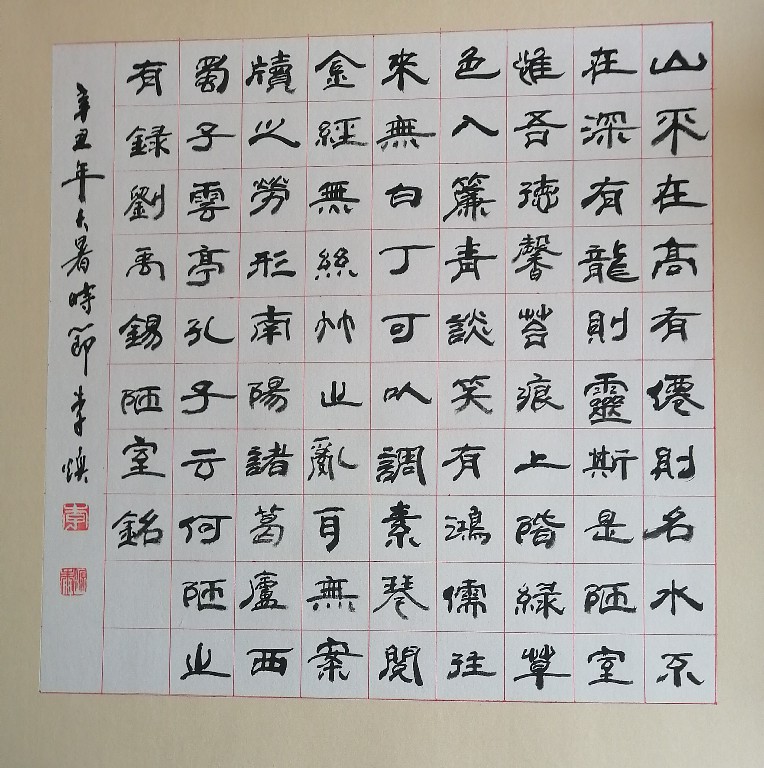 山不在高有僊則名水不
在深有龍則靈斯是陋室
惟吾德馨苔痕上階緑草
色入簾青談笑有鴻儒往
來無白丁可以調素琴閱
金經無絲竹之亂耳無案
牘之勞形南陽諸葛廬西
蜀子雲亭孔子云何陋之
有録劉禹錫陋室銘
辛丑年大暑時節李